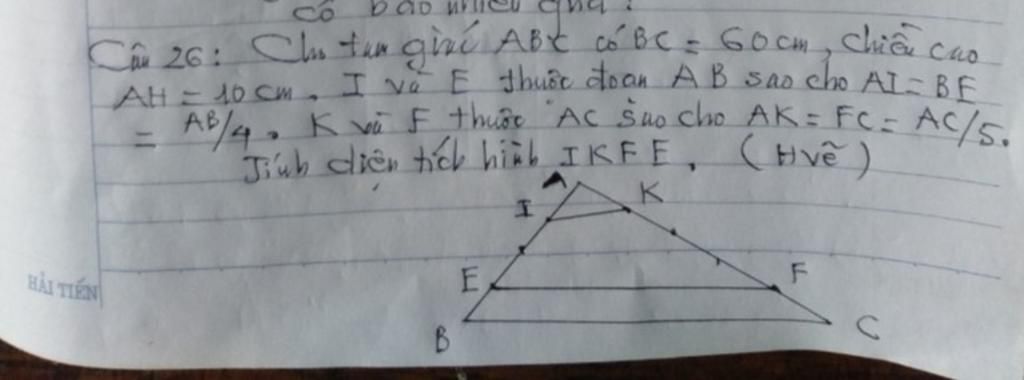 có bao nhiêu quả?
Câu 26: Cho tam giác ABC có BC = 60cm, chiều cao
AH = 10cm. I và E thuộc đoạn AB sao cho AI = BE
= AB/4. K và F thuộc AC sao cho AK = FC = AC/5.
Tính diện tích hình IKFE. (Hvẽ)
A
I K
E F
B C
HẢI TIẾN